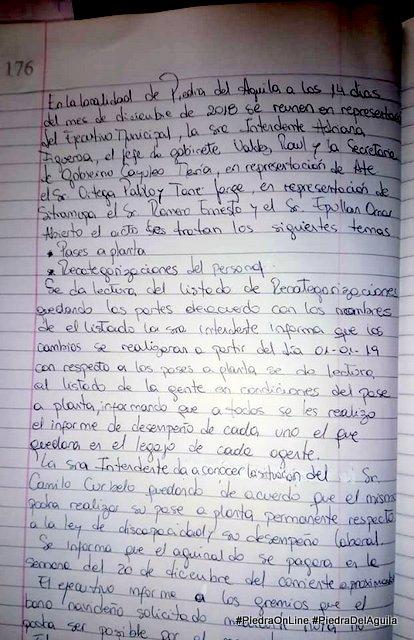 176
En la localidad de Piedra del Aguila a los 14 dias
del mes de diciembre de 2018 se reunen en representación
del Ejecutivo Municipal, la sra Intendente Adriana
Figueroa, el jefe de gabinete Valdes, Raul y la Secretaria
de Gobierno Cayuleo Maria, en representación de Ate
el Sr. Ortega Pablo y Tane Jorge, en representación de
Sitramupa el Sr. Romero Ernesto y el Sr. Epullan Omar
Abierto el acto se tratan los siguientes temas
* Pases a planta
* Recategorizaciones del personal.
Se da lectura del listado de Recategorizaciones
quedando las partes de acuerdo con los nombres
de el listado la sra intendente informa que los
cambios se realizaran a partir del día 01-01-19
con respecto a los pases a planta se da lectura
al listado de la gente en condiciones del pase
a planta, informando que a todos se les realizo
el informe de desempeño de cada uno el que
quedara en el legajo de cada agente.
La sra Intendente da a conocer la situación del Sr.
Camilo Curbelo quedando de acuerdo que el mismo
podra realizar su pase a planta permanente respecto
a la ley de discapacidad y su desempeño laboral.
Se informa que el aguinaldo se pagara en la
semana del 20 de diciembre del corriente aproximadamente
El ejecutivo informa a los gremios que el
bono navideño solicitado mediante nota no
podra ser posible por el
#PiedraOnLine #PiedraDelAguila